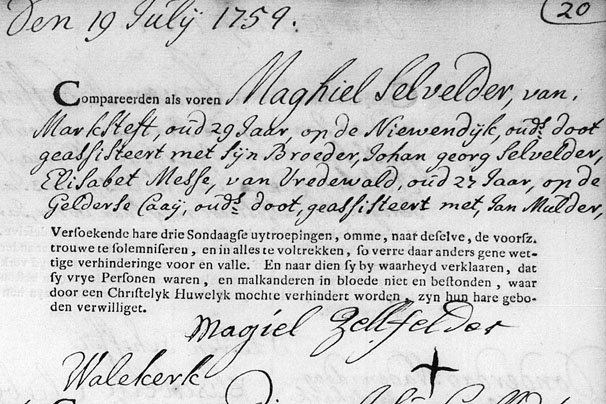 Den 19 Julij 1759.
20
Compareerden als voren Maghiel Selvelder, van
Marksteft, oud 29 Jaar, op de Niewendijk, ouds doot
geassisteert met sijn Broeder, Johan georg Selvelder,
Elisabet Messe, van Vredewald, oud 27 Jaar, op de
Gelderse Caaij, ouds doot, geassisteert met, Jan Mulder,
Versoekende hare drie Sondaagse uytroepingen, omme, naar deselve, de voorsz.
trouwe te solemniseren, en in alles te voltrekken, so verre daar anders gene wet-
tige verhinderinge voor en valle. En naar dien sy by waarheyd verklaaren, dat
sy vrye Personen waren, en malkanderen in bloede niet en bestonden, waar
door een Christelyk Huwelyk mochte verhindert worden, zyn hun hare gebo-
den verwilliget.
Magiel Zellfelder
Walekerk